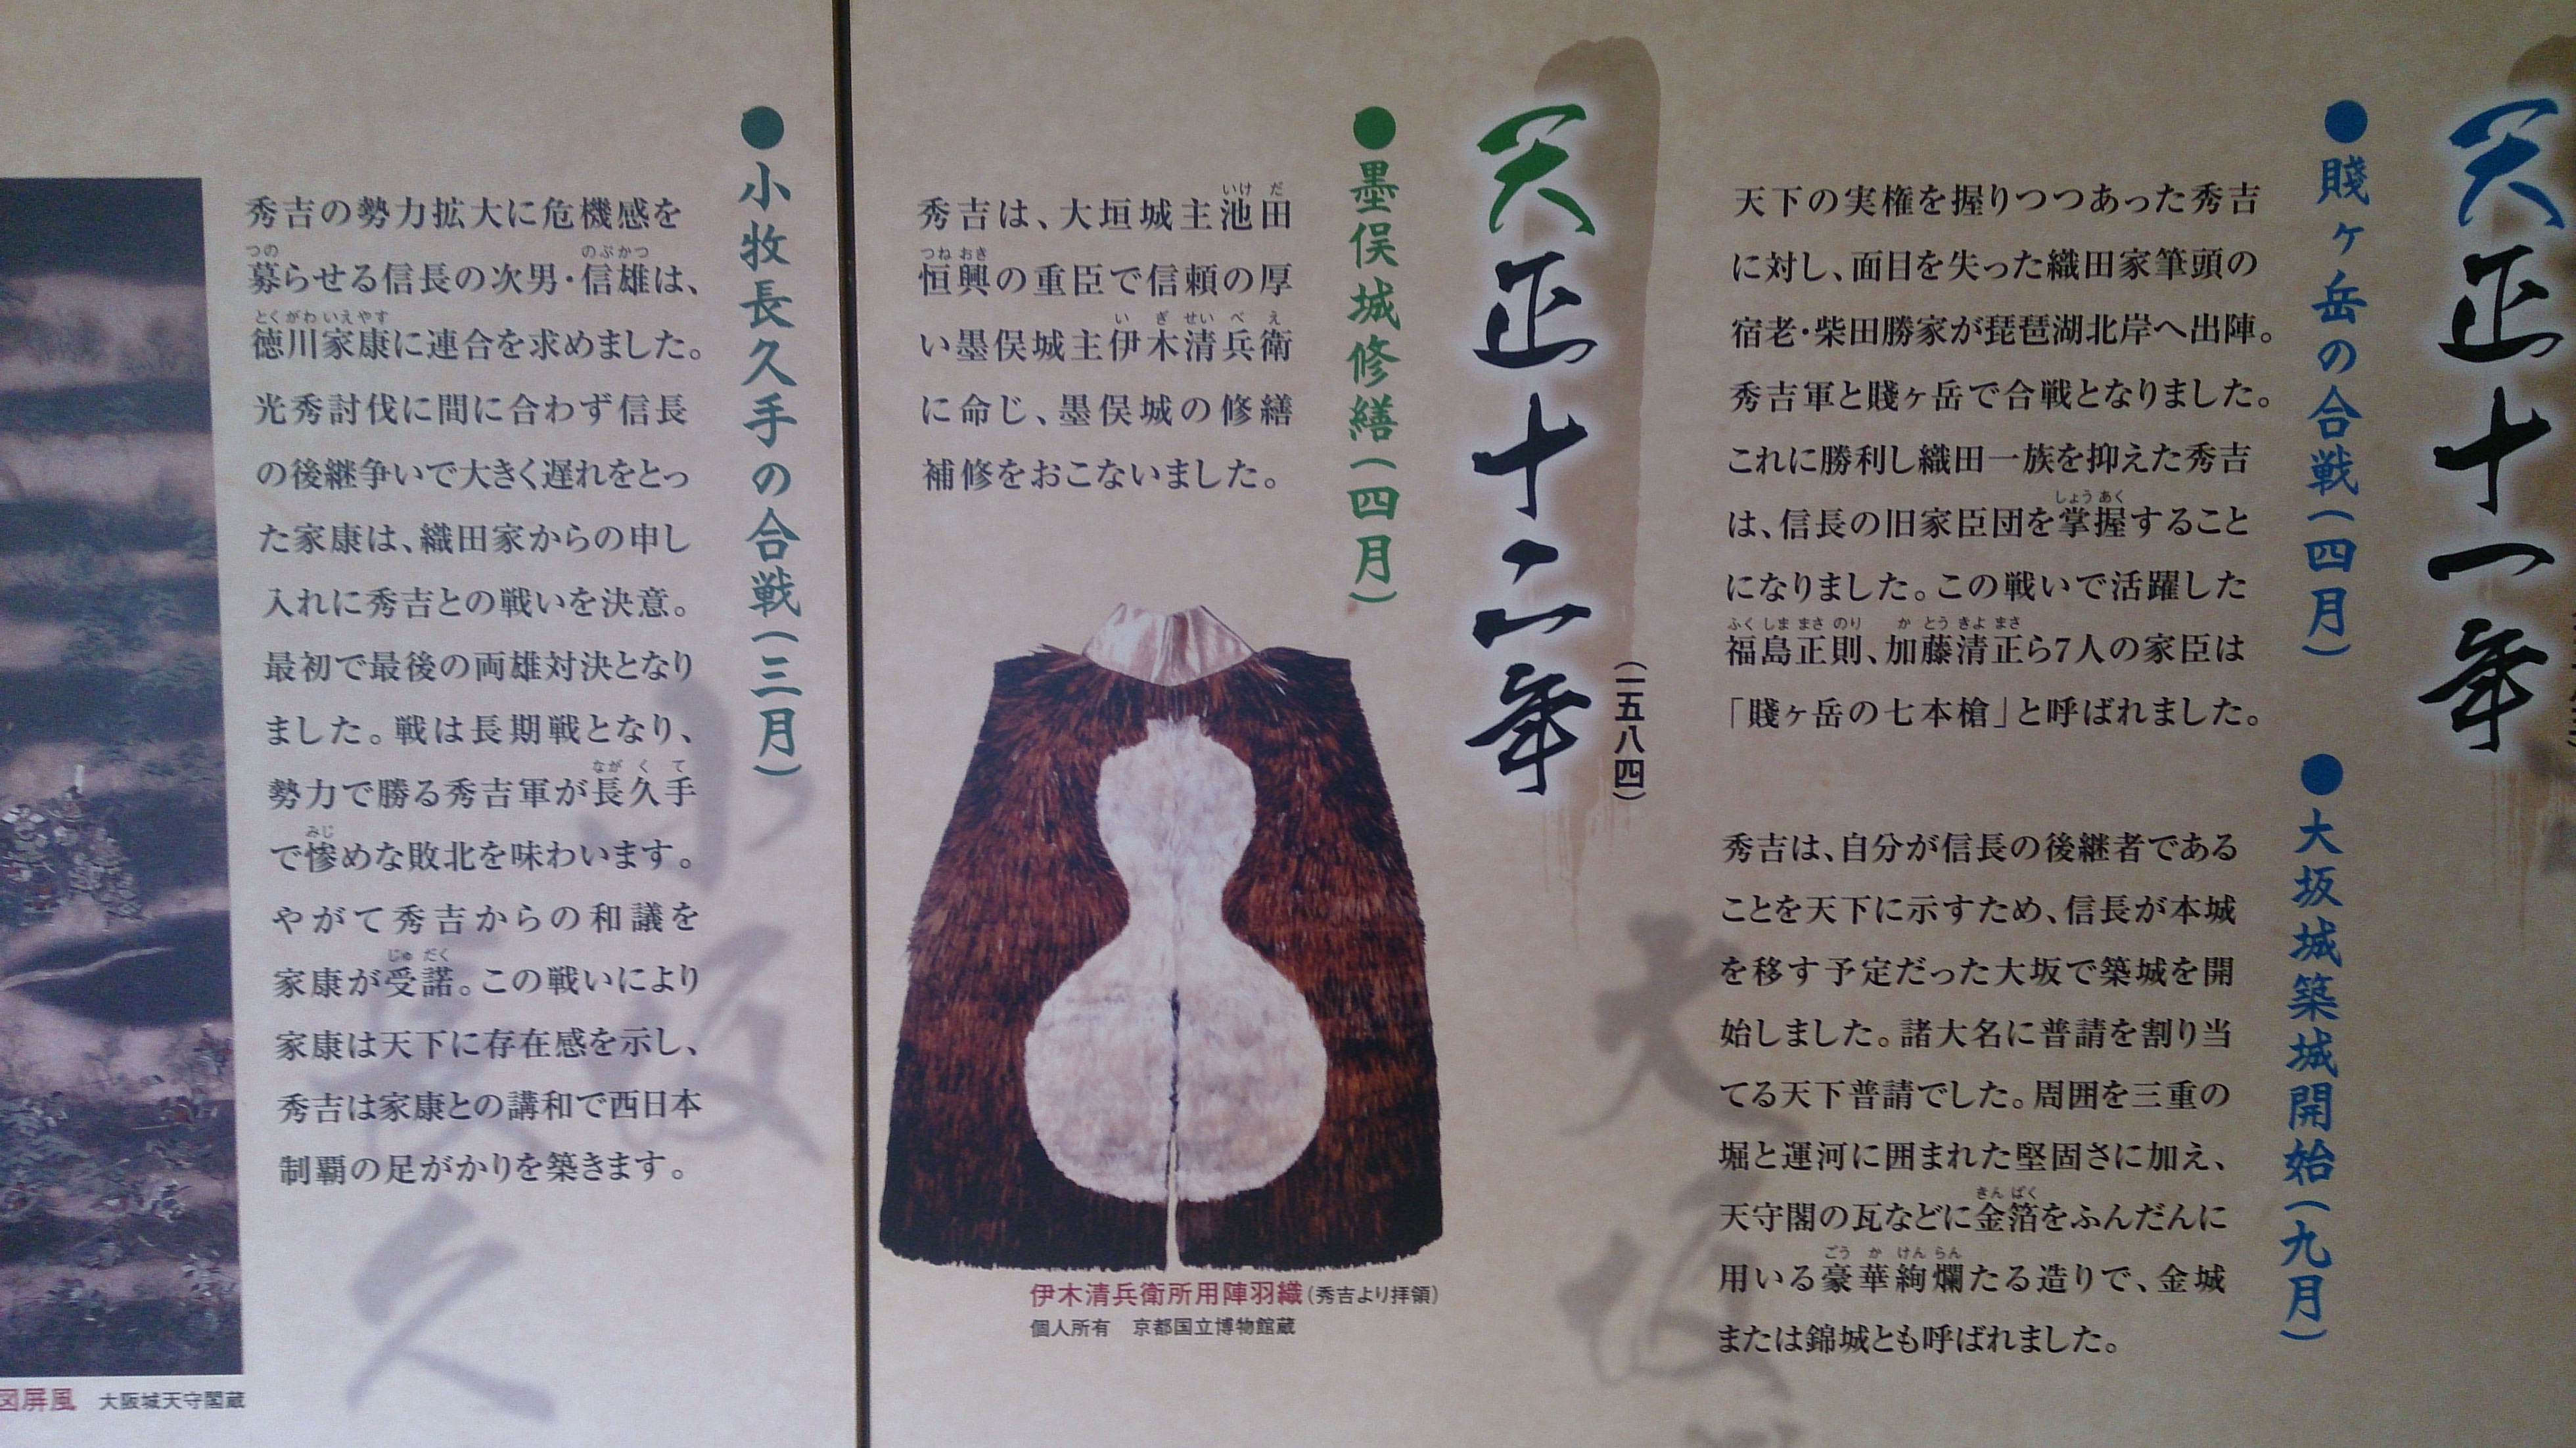 天正十一年
●賤ヶ岳の合戦(四月)
天下の実権を握りつつあった秀吉
に対し、面目を失った織田家筆頭の
宿老・柴田勝家が琵琶湖北岸へ出陣。
秀吉軍と賤ヶ岳で合戦となりました。
これに勝利し織田一族を抑えた秀吉
は、信長の旧家臣団を掌握すること
しょうあく
になりました。この戦いで活躍した
福島正則、加藤清正ら7人の家臣は
ふくしままさのり かとうきよまさ
「賤ヶ岳の七本槍」と呼ばれました。
●大坂城築城開始(九月)
秀吉は、自分が信長の後継者である
ことを天下に示すため、信長が本城
を移す予定だった大坂で築城を開
始しました。諸大名に普請を割り当
てる天下普請でした。周囲を三重の
堀と運河に囲まれた堅固さに加え、
天守閣の瓦などに金箔をふんだんに
きんぱく
用いる豪華絢爛たる造りで、金城
ごうかけんらん
または錦城とも呼ばれました。
天正十二年
(一五八四)
●墨俣城修繕(四月)
秀吉は、大垣城主池田
いけだ
恒興の重臣で信頼の厚
つねおき
い墨俣城主伊木清兵衛
いぎせいべえ
に命じ、墨俣城の修繕
補修をおこないました。
伊木清兵衛所用陣羽織(秀吉より拝領)
個人所有 京都国立博物館蔵
●小牧長久手の合戦(三月)
秀吉の勢力拡大に危機感を
募らせる信長の次男・信雄は、
つの のぶかつ
徳川家康に連合を求めました。
とくがわいえやす
光秀討伐に間に合わず信長
の後継争いで大きく遅れをとっ
た家康は、織田家からの申し
入れに秀吉との戦いを決意。
最初で最後の両雄対決となり
ました。戦は長期戦となり、
勢力で勝る秀吉軍が長久手
ながくて
で惨めな敗北を味わいます。
みじ
やがて秀吉からの和議を
家康が受諾。この戦いにより
じゅだく
家康は天下に存在感を示し、
秀吉は家康との講和で西日本
制覇の足がかりを築きます。
図屏風 大阪城天守閣蔵